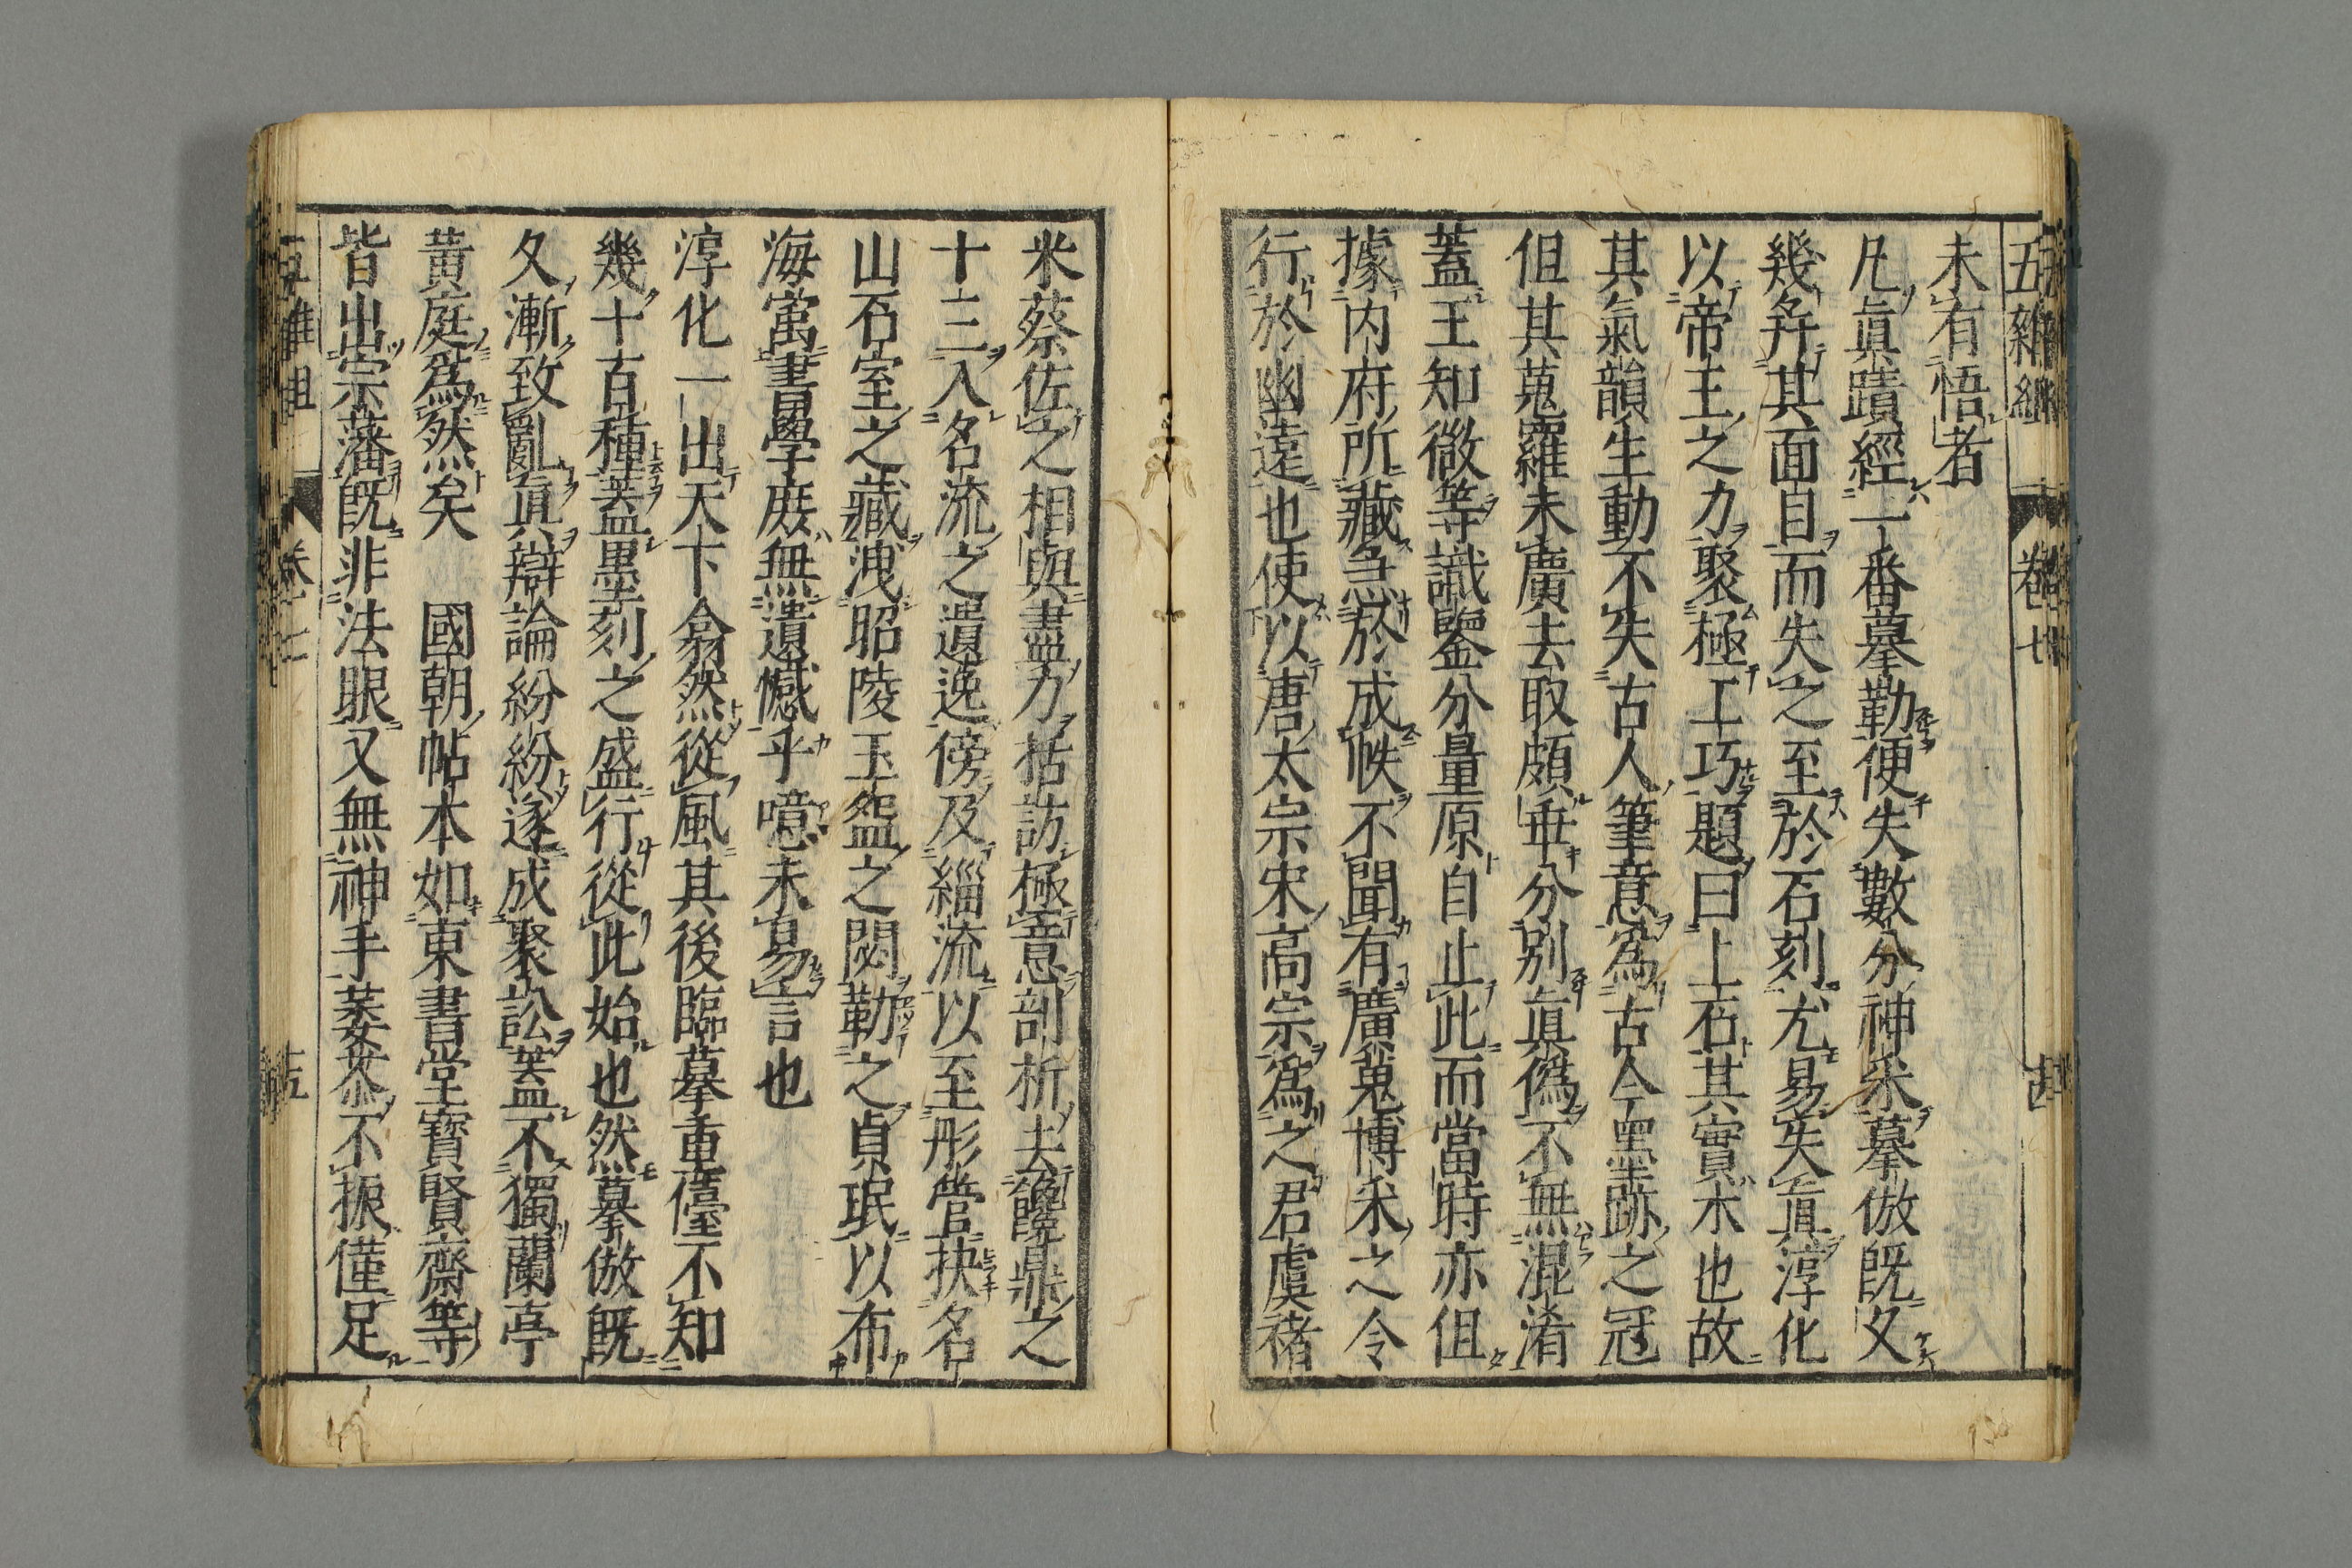 五雜組 卷七
未有悟者
凡眞蹟經一番摹勒便失數分神采摹倣既久
幾幷其面目而失之至於石刻尤易失眞淳化
以帝王之力聚極工巧題曰上石其實木也故
其氣韻生動不失古人筆意爲古今墨跡之冠
但其蒐羅未廣去取頗乖分別眞僞不無混淆
蓋王知微等識鑒分量原自止此而當時亦但
據内府所藏急於成帙不聞有廣蒐博采之令
行於幽遠也使以唐太宗宋高宗爲之君虞褚
米蔡佐之相與盡力括訪極意剖析去讒鼎之
十三入名流之遺逸傍及緇流以至彤管抉名
山石室之藏洩昭陵玉盌之閟勒之貞珉以布
海寓書學庶無遺憾乎噫未易言也
淳化一出天下翕然從風其後臨摹重儓不知
幾十百種蓋墨刻之盛行從此始也然摹倣既
久漸致亂眞辯論紛紛遂成聚訟蓋不獨蘭亭
黃庭爲然矣 國朝帖本如東書堂寶賢齋等
皆出宗藩既非法眼又無神手萎苶不振僅足
五雜組 卷七 十五